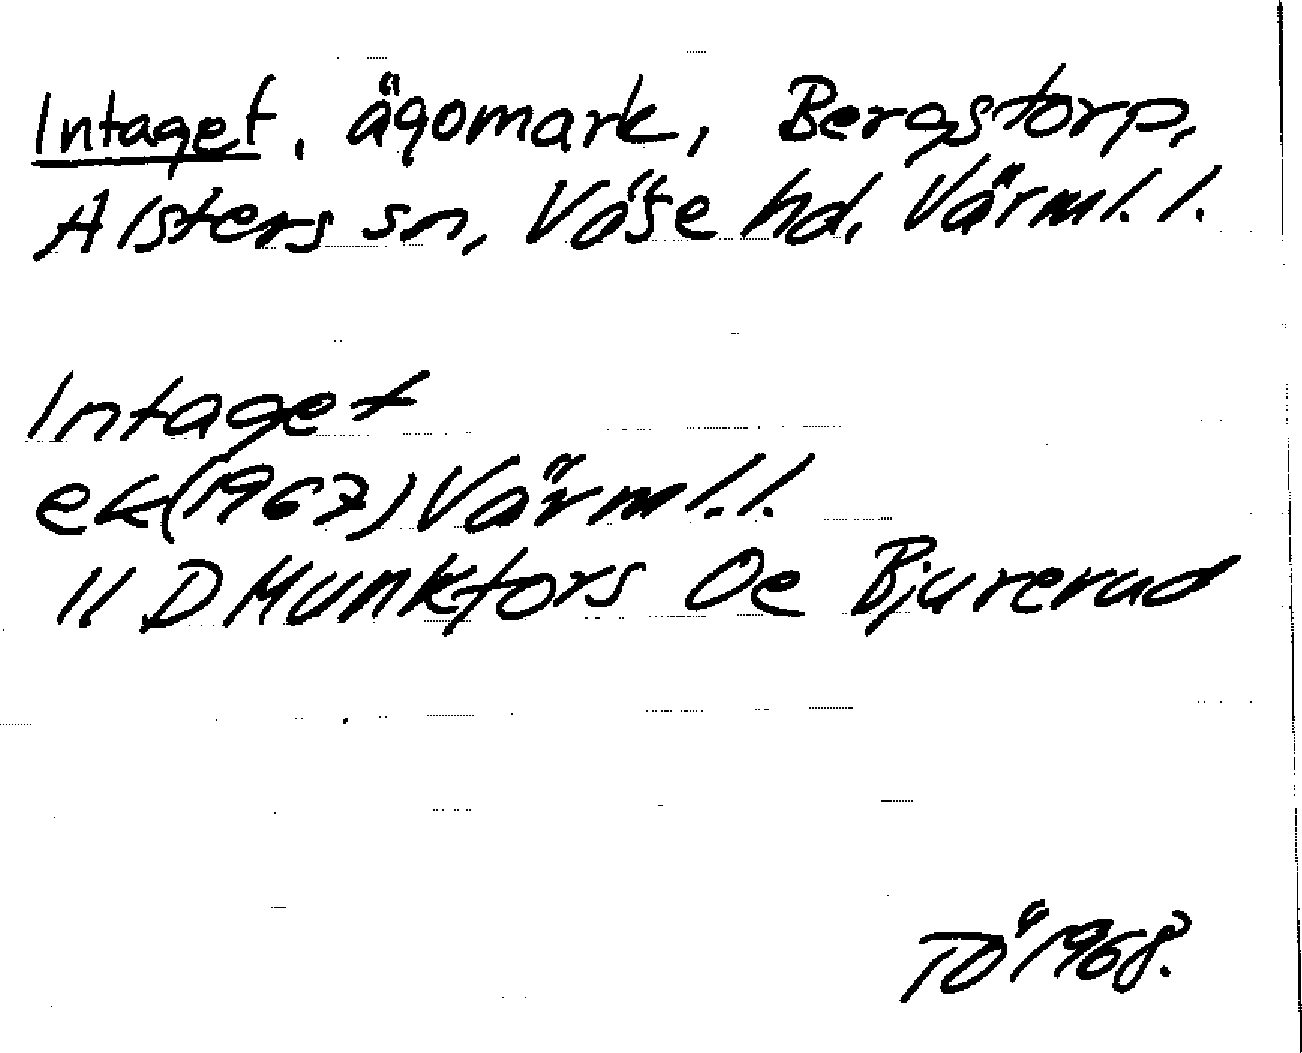 Intaget, ägomark, Bergstorp,
Alsters sn, Väse hd, Värml. l.
Intaget
ek (1967) Värml. l.
11 D Munkfors Oe Bjurerud
TÖ 1968.